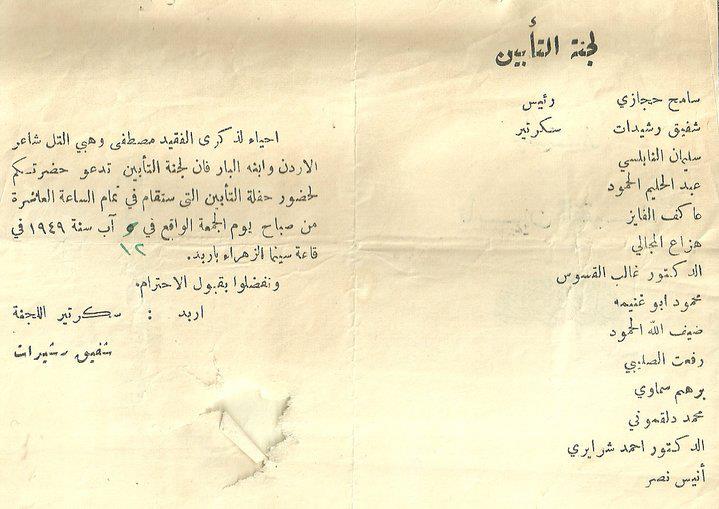 لجنة التأبين
سامح حجازي رئيس
شفيق رشيدات سكرتير
سليمان النابلسي
عبد الحليم الحمود
عاكف الفايز
هزاع المجالي
الدكتور غالب القسوس
محمود ابو غنيمه
ضيف الله الحمود
رفعت الصليبي
برهم سماوي
محمد دلقموني
الدكتور احمد شرايري
أنيس نصر
احياء لذكرى الفقيد مصطفى وهبي التل شاعر
الاردن وابنه البار فان لجنة التأبين تدعو حضرتكم
لحضور حفلة التأبين التي ستقام في تمام الساعة العاشرة
من صباح يوم الجمعة الواقع في آب سنة ١٩٤٩ في
١٢
قاعة سينما الزهراء باربد.
وتفضلوا بقبول الاحترام.
اربد : سكرتير اللجنة
شفيق رشيدات